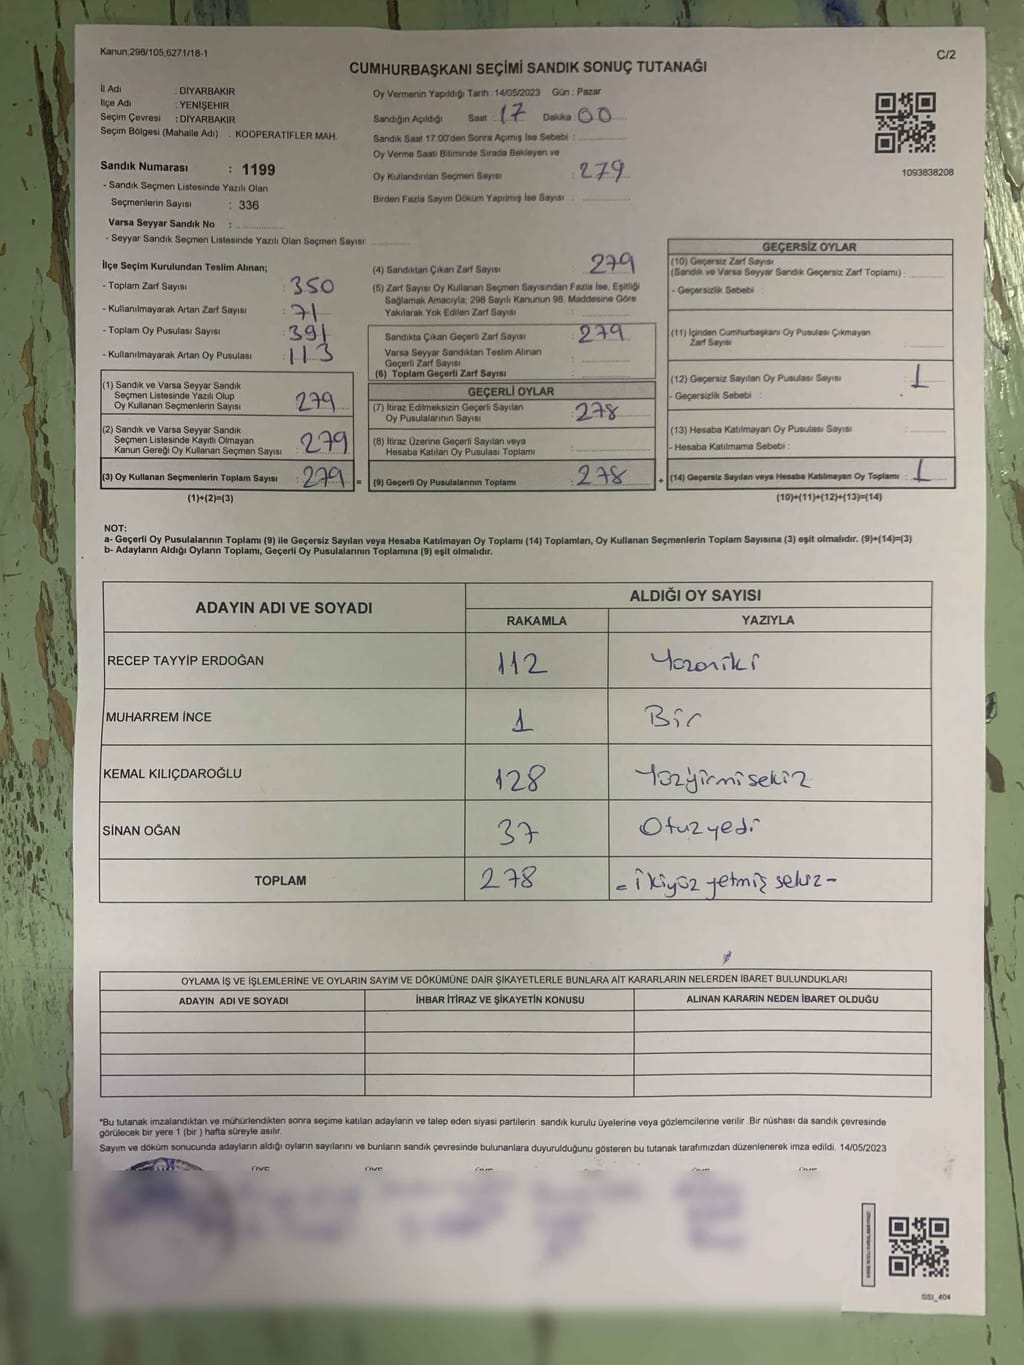 Kanun,298/105,6271/18-1
C/2
CUMHURBAŞKANI SEÇİMİ SANDIK SONUÇ TUTANAĞI
İl Adı : DİYARBAKIR
İlçe Adı : YENİŞEHİR
Seçim Çevresi : DİYARBAKIR
Seçim Bölgesi (Mahalle Adı) . KOOPERATİFLER MAH.
Oy Vermenin Yapıldığı Tarih :14/05/2023 Gün : Pazar
Sandığın Açıldığı Saat : 17 Dakika : 00
Sandık Saat 17:00'den Sonra Açımış İse Sebebi :
Oy Verme Saati Bitiminde Sırada Bekleyen ve
Oy Kullandırılan Seçmen Sayısı : 279
Birden Fazla Sayım Döküm Yapılmış İse Sayısı :
1093838208
Sandık Numarası : 1199
- Sandık Seçmen Listesinde Yazılı Olan
Seçmenlerin Sayısı : 336
Varsa Seyyar Sandık No :
- Seyyar Sandık Seçmen Listesinde Yazılı Olan Seçmen Sayısı:
İlçe Seçim Kurulundan Teslim Alınan;
- Toplam Zarf Sayısı : 350
- Kullanılmayarak Artan Zarf Sayısı : 71
- Toplam Oy Pusulası Sayısı : 391
- Kullanılmayarak Artan Oy Pusulası : 113
(1) Sandık ve Varsa Seyyar Sandık
Seçmen Listesinde Yazılı Olup
Oy Kullanan Seçmenlerin Sayısı : 279
(2) Sandık ve Varsa Seyyar Sandık
Seçmen Listesinde Kayıtlı Olmayan
Kanun Gereği Oy Kullanan Seçmen Sayısı : 279
(3) Oy Kullanan Seçmenlerin Toplam Sayısı : 279 =
(1)+(2)=(3)
(4) Sandıktan Çıkan Zarf Sayısı : 279
(5) Zarf Sayısı Oy Kullanan Seçmen Sayısından Fazla İse, Eşitliği
Sağlamak Amacıyla; 298 Sayılı Kanunun 98. Maddesine Göre
Yakılarak Yok Edilen Zarf Sayısı :
Sandıkta Çıkan Geçerli Zarf Sayısı : 279
Varsa Seyyar Sandıktan Teslim Alınan
Geçerli Zarf Sayısı :
(6) Toplam Geçerli Zarf Sayısı :
GEÇERLİ OYLAR
(7) İtiraz Edilmeksizin Geçerli Sayılan
Oy Pusulalarının Sayısı : 278
(8) İtiraz Üzerine Geçerli Sayılan veya
Hesaba Katılan Oy Pusulası Toplamı :
(9) Geçerli Oy Pusulalarının Toplamı : 278 +
GEÇERSİZ OYLAR
(10) Geçersiz Zarf Sayısı
(Sandık ve Varsa Seyyar Sandık Geçersiz Zarf Toplamı) :
- Geçersizlik Sebebi :
(11) İçinden Cumhurbaşkanı Oy Pusulası Çıkmayan
Zarf Sayısı
(12) Geçersiz Sayılan Oy Pusulası Sayısı : 1
- Geçersizlik Sebebi :
(13) Hesaba Katılmayan Oy Pusulası Sayısı :
- Hesaba Katılmama Sebebi :
(14) Geçersiz Sayılan veya Hesaba Katılmayan Oy Toplamı : 1
(10)+(11)+(12)+(13)=(14)
NOT:
a- Geçerli Oy Pusulalarının Toplamı (9) ile Geçersiz Sayılan veya Hesaba Katılmayan Oy Toplamı (14) Toplamları, Oy Kullanan Seçmenlerin Toplam Sayısına (3) eşit olmalıdır. (9)+(14)=(3)
b- Adayların Aldığı Oyların Toplamı, Geçerli Oy Pusulalarının Toplamına (9) eşit olmalıdır.
ADAYIN ADI VE SOYADI
ALDIĞI OY SAYISI
RAKAMLA
YAZIYLA
RECEP TAYYİP ERDOĞAN 112 Yüzoniki
MUHARREM İNCE 1 Bir
KEMAL KILIÇDAROĞLU 128 Yüzyirmisekiz
SİNAN OĞAN 37 Otuzyedi
TOPLAM 278 = ikiyüz yetmiş sekiz -
OYLAMA İŞ VE İŞLEMLERİNE VE OYLARIN SAYIM VE DÖKÜMÜNE DAİR ŞİKAYETLERLE BUNLARA AİT KARARLARIN NELERDEN İBARET BULUNDUKLARI
ADAYIN ADI VE SOYADI
İHBAR İTİRAZ VE ŞİKAYETİN KONUSU
ALINAN KARARIN NEDEN İBARET OLDUĞU
*Bu tutanak imzalandıktan ve mühürlendikten sonra seçime katılan adayların ve talep eden siyasi partilerin sandık kurulu üyelerine veya gözlemcilerine verilir .Bir nüshası da sandık çevresinde
görülecek bir yere 1 (bir ) hafta süreyle asılır.
Sayım ve döküm sonucunda adayların aldığı oyların sayılarını ve bunların sandık çevresinde bulunanlara duyurulduğunu gösteren bu tutanak tarafımızdan düzenlenerek imza edildi. 14/05/2023
SSI_404